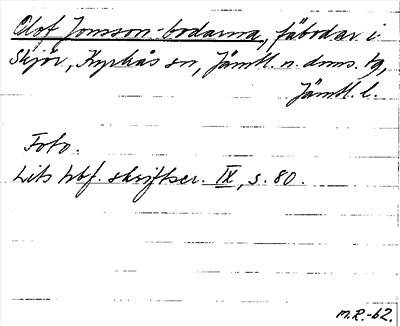 Olof Jonson-bodarna, fäbodar i
Skjör, Kyrkås sn, Jämtl. n. doms. tg,
Jämtl. l.
Foto.
Lits hbf. skriftser. IX, s. 80.
M.R.-62.